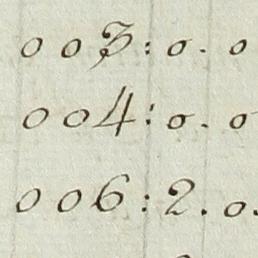 003:0.0
004:0.0
006:2.0.